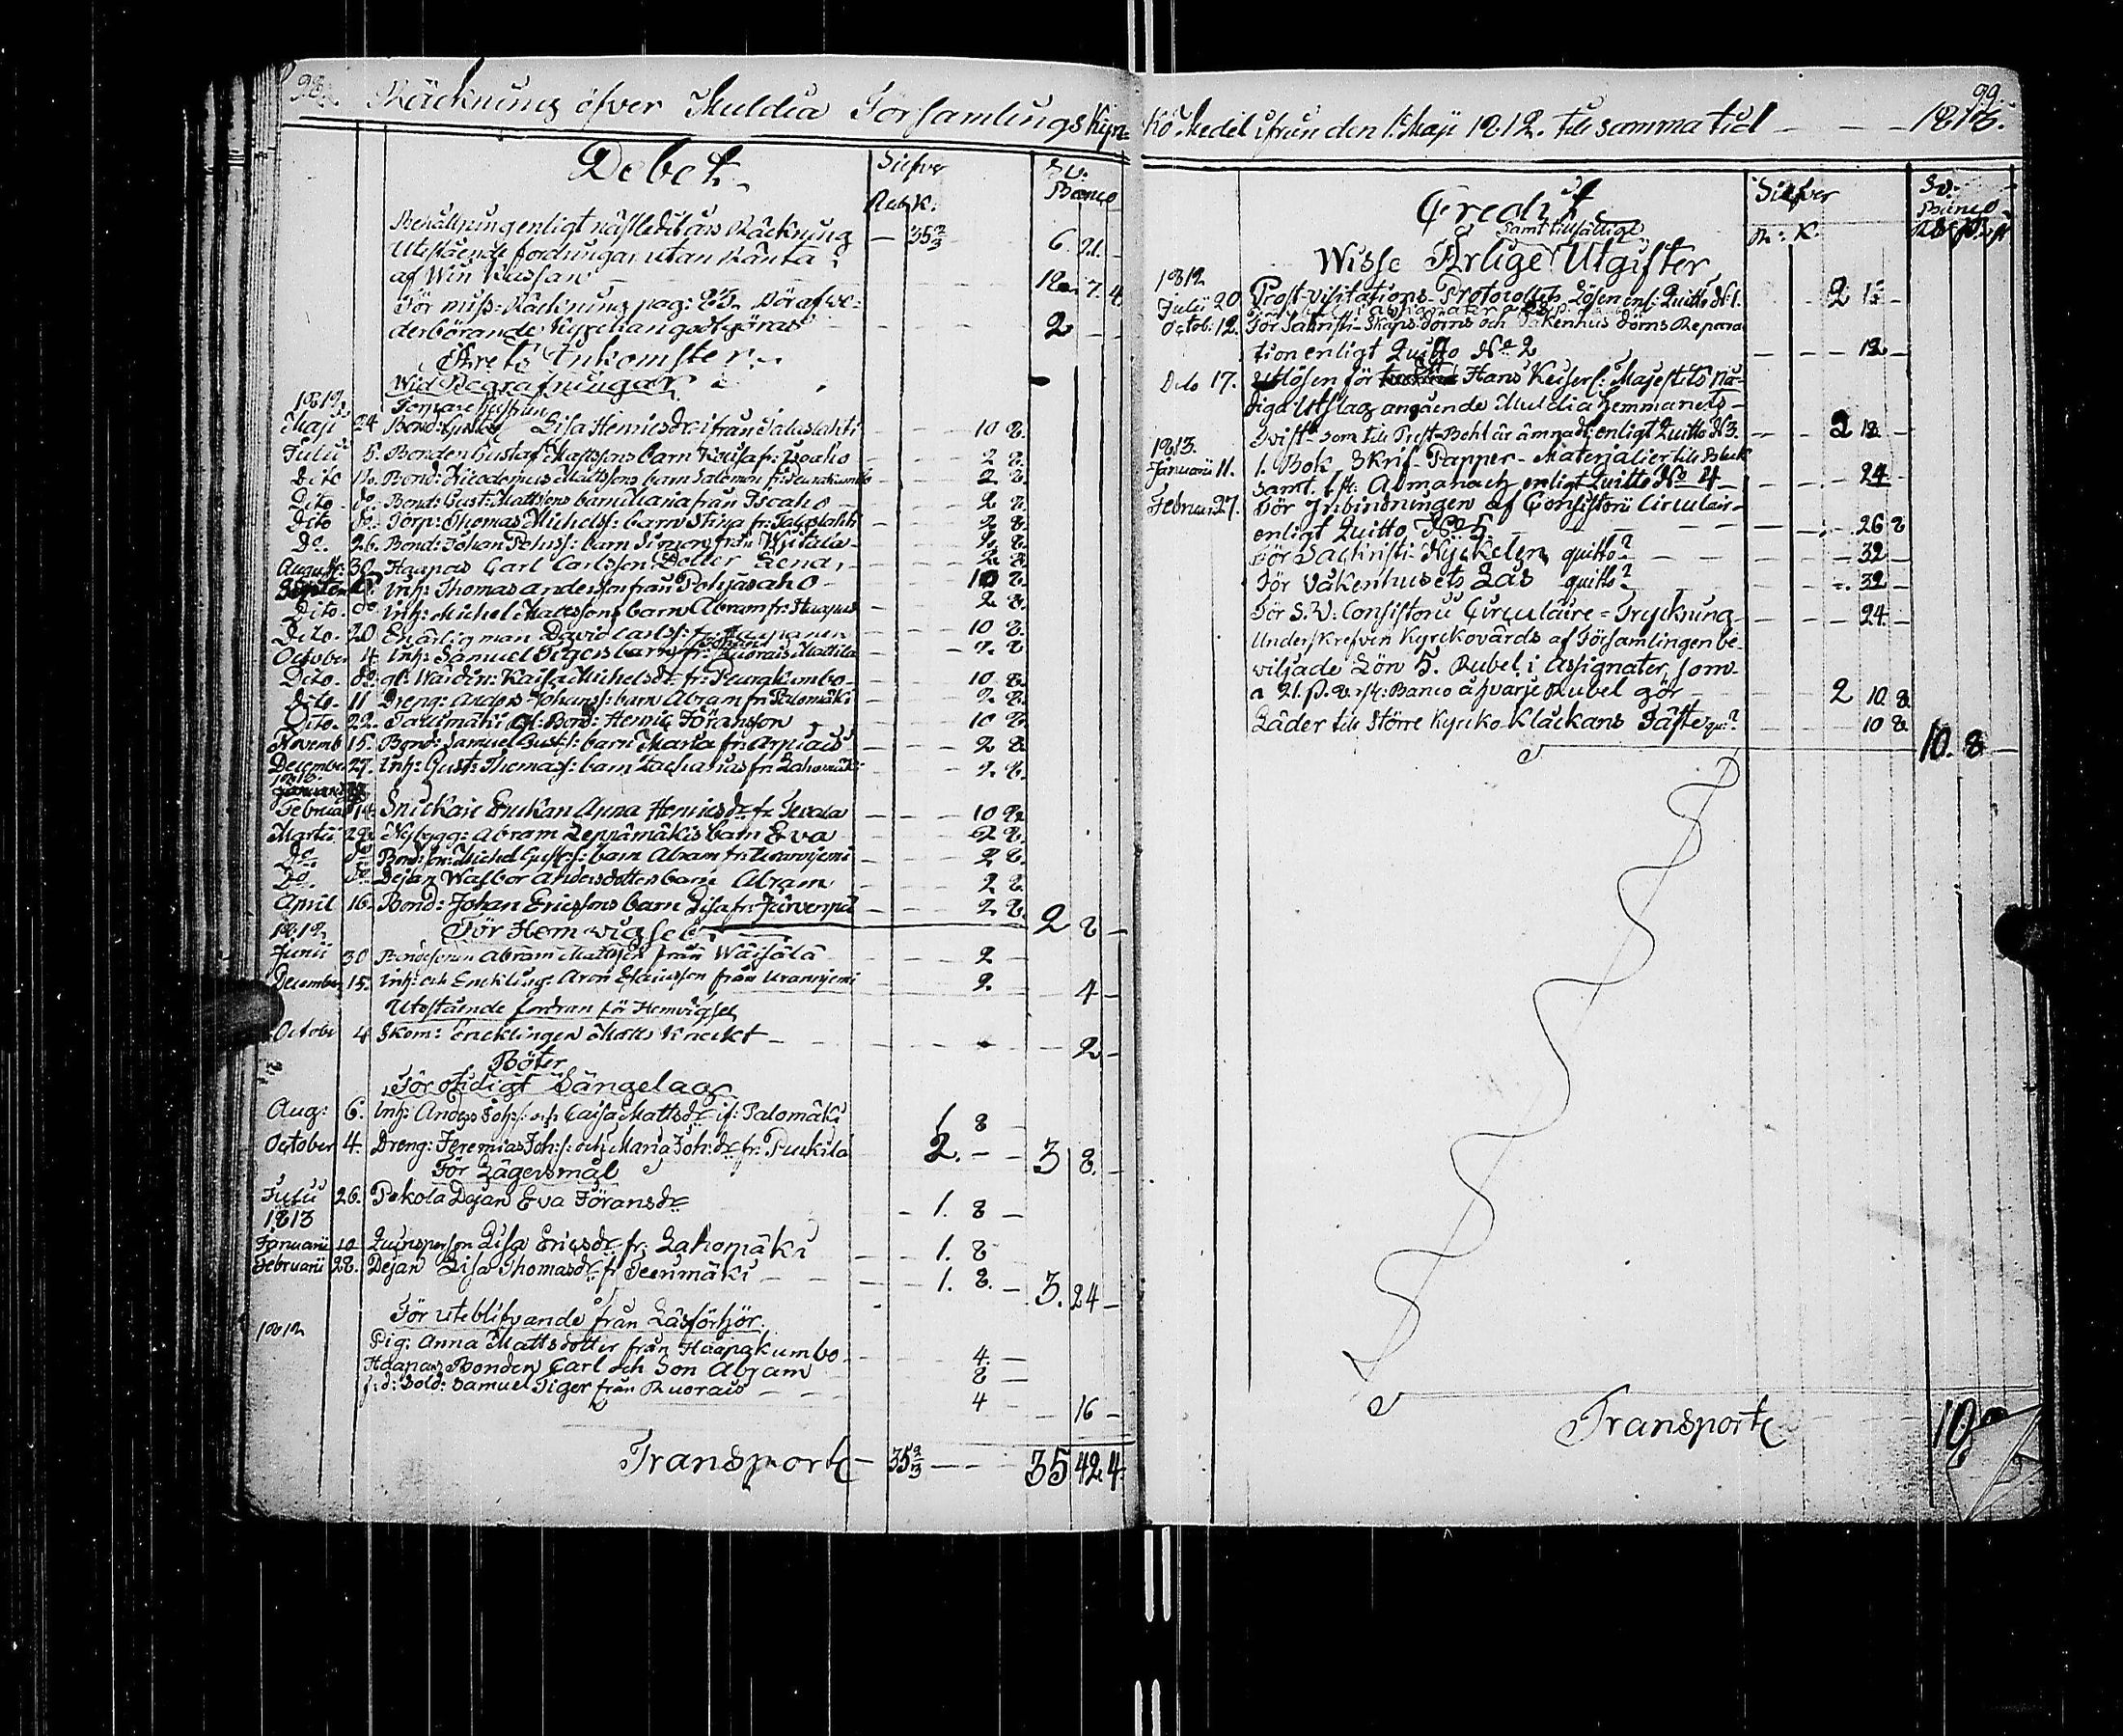 98.
Räckning öfver Muldia Församlings Kyr-
Debet.
Silfver
Sv: Banco
Rub K:
Behållning enligt näftledit års Räckning — 35 2/3 6. 21. —
Utestående fordringar utan Ränta
af Win Kassan — 7. 4.
För miss-Räckning pag: 23. Bör af we-
derbörande Kyrckian godtgöras — 2 — —
Årets Inkomster.
Wid Begrafningar
1812.
Maji 24 Lisa Henricsdr ifrån Taluslahti — 10 8.
Julii 5. Bonden Gustaf Mattssons barn Kaisa fr: Isoaho — 2 8.
Dito Bond: Nicodemus Mattssons barn Salomon — 2 8.
Dito. do. Bond: Gust: Mattsons barn Maria från Isoaho — 2 8.
Dito do. Torp: Thomas Michelss: barn Stina fr: Taluslahti — 2 8.
Do. 26. Bond: Johan barn Simon från — 2 8.
August: 30 Haapas Carl Carlsson Dotter Lena — 2 8.
Inh: Thomas andersson från Pohjasaho — 10 8.
Dito. do Inh: Michel Matssons barn Abram fr: Haapas — 2 8.
Dito. 20 En ärlig man David Carlss: — 10 8.
October 4. Inh: Samuel Tigers barn fr: Ruorais Mattila — 2 8
Dito. do. gl: Wärdin: Kaisa Michelsdr fr: Peurakumbo — 10 8.
Dito. 11 Dreng: Anders Johanss: barn Abram fr Palomäki — 2 8.
Dito. 22. gl: Bond: Henric Jöransson — 10 8.
Novemb 15. Bond: Samuel Gust:s: barn Maria fr: — 2 8.
December 27. Inh: Gust: Thomass: barn Zacharias fr: Lahomäki — 2 8.
1813.
Februar 14. Snickare Enckan Anna Henricsdr fr Tevala — 10 8.
Martii 28. Nybygg: Abram Leppämäkis barn Eva — 2 8.
Do do Bond: sn: Michel Gust:s: barn Abram fr: — 2 8.
Do. do Dejan Walbor Andersdotters barn Abram — 2 8
April 16. Bond: Johan Ericssons barn Lisa fr: Järvenpä — 2 8. 2 8 —
1812
För Hemvigsel.
Junii 30 Bondesonen Abram Mattson från Wäisälä — 2 —
December 15. Inh: och Enckling: Aron från — 2. 4 —
Utestående fordran för Hemvigsel
October 4 Skom: Encklingen Matts Kneckt — — 2 —
Böter
För otidigt Sängelag
Aug: 6. Inh: Anders Joh:s: och Caisa Mattsdr if: Palomäki 1. 8 —
October 4. Dreng: Jeremias Joh:s: och Maria Joh:dr fr: Purkila 2. — — 3 8. —
För Lägersmål
Julii 26. Pekola Dejan Eva Jöransdr — 1. 8 —
1813
Januarii 10. Quinsperson Lisa Ericsdr fr: Lahomäki — 1. 8
Februarii 28. Dejan Lisa Thomasdr fr Teerimäki — 1. 8. — 3. 24 —
För uteblifvande från Läsförhör.
1812
Pig: Anna Mattsdotter från Haapakumbo — 4. —
Haapas Bonden Carl och Son Abram 8 —
f: d: Sold: Samuel Tiger från Ruorais — 4 — — 16 —
Transport — 35 2/3 — — 35 42 4.
99.
ko Medel ifrån den 1. Maji 1812. till samma tid — — — 1813.
Credit
samt tillfällige
Wisse Årlige Utgifter
Silfver
R: K:
Sv. Banco
1812
Julii 20 Prost-visitations-Protocollets Lösen enl: Quitto N:1. 2
Octob. 12. För Sakristi-Skåps dörns och Vakenhus dörns Repara-
tion enligt Quitto No 2 — 12 —
Dito 17. Utlösen för Hans Keiserl: Majestäts nå-
diga Utslag angående Muldia hemmanets
twist som till Prest-Bohl är ämnadt; enligt Quitto N 3. — 2 12 —
1813.
Januarii 11. 1. Bok Skrif-Papper-Materialier till Bleck
samt 1 st: Almanach enligt Quitto No 4 — 24 —
Februari 27. För Inbindningen af Consistorii Circulair-
enligt Quitto No 5. — 26 8
För Sachristi-Nyckelen quitto? — 32 —
För Vakenhusets Lås quitto? — 32 —
För S. V: Consistorii Circulaire-Tryckning — 24 —
Underskrefven Kyrckovärds af Församlingen be-
wiljade Lön 5. Rubel i Assignater, som
a 21. s. 8. rst: Banco å hvarje Rubel gör — 2 10 8.
Läder till Större Kyrcko Klåckans Fäste qu:? — 10 8
10. 8 —
Transport 10.